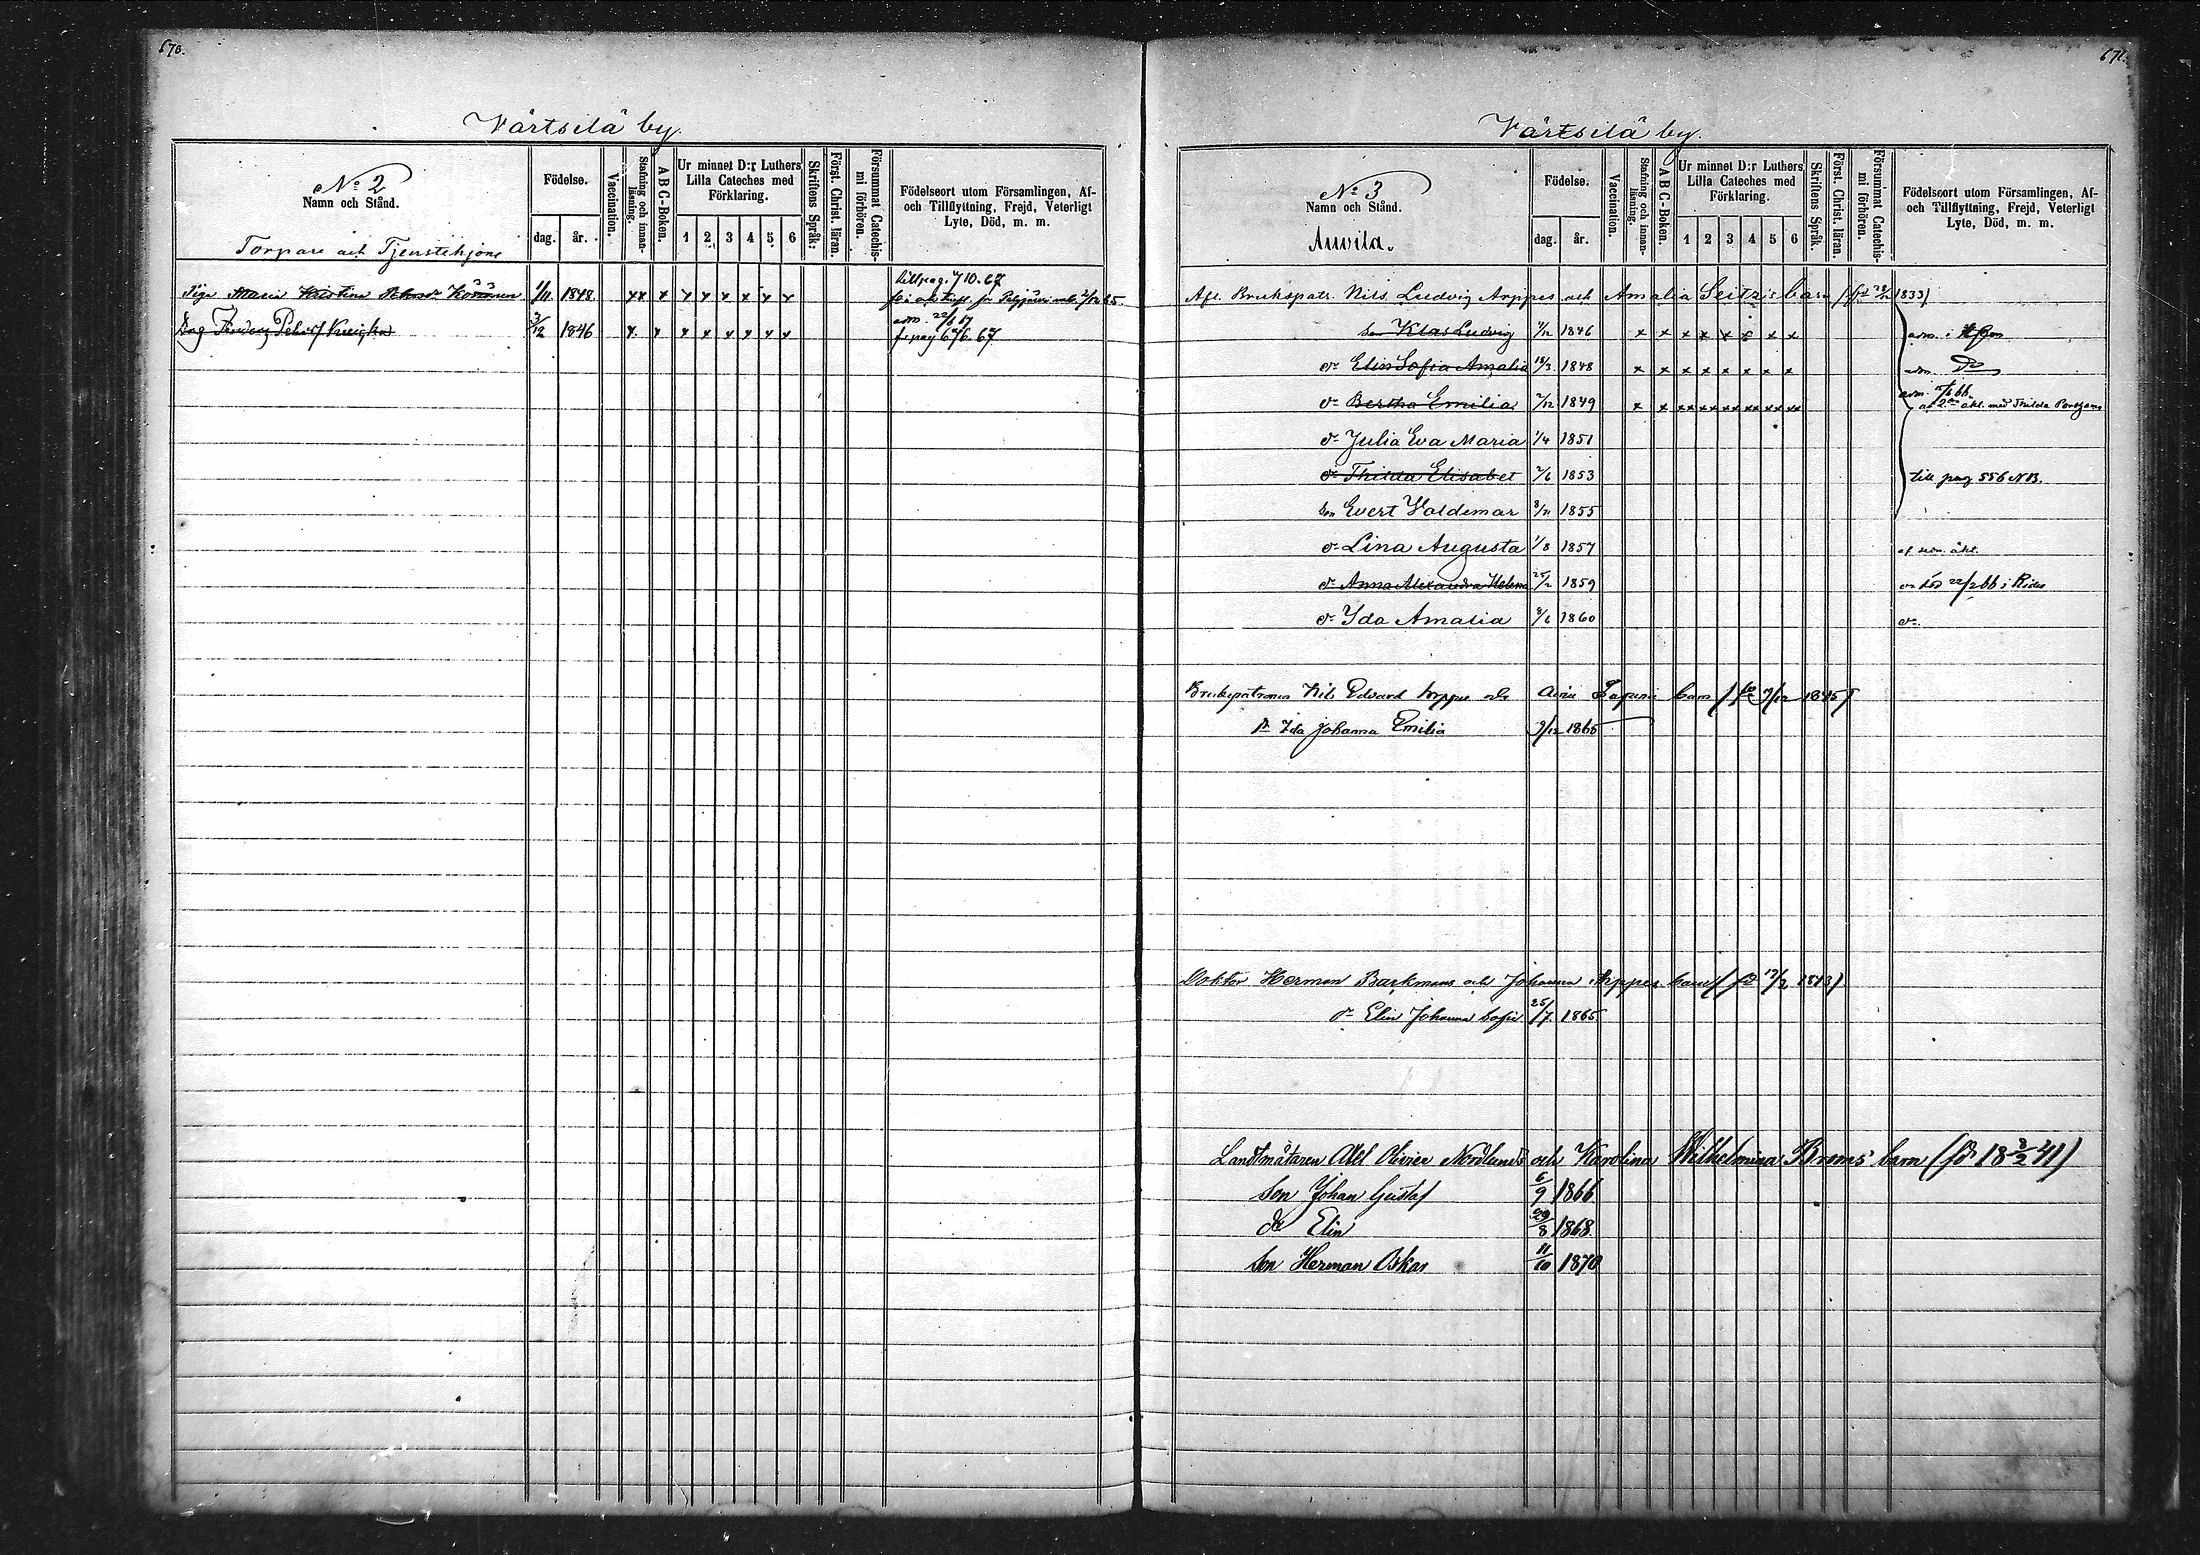 670.
Värtsilä by.
No 2
Namn och Stånd.
Torpare och Tjenstehjon
Födelse.
dag. år.
Vaccination.
Stafning och innanläsning.
A B C-Boken.
Ur minnet D:r Luthers Lilla Cateches med Förklaring.
1 2 3 4 5 6
Skriftens Språk.
Först. Christ. läran.
Försummat Catechismi förhören.
Födelseort utom Församlingen, Af- och Tillflyttning, Frejd, Veterligt Lyte, Död, m. m.
Piga Maria Kristina 1/11 1848 xx x x x x x x x
3/12 1846 x x x x x x x x
671.
Värtsilä by.
No 3
Namn och Stånd.
Anvila.
Födelse.
dag. år.
Vaccination.
Stafning och innanläsning.
A B C-Boken.
Ur minnet D:r Luthers Lilla Cateches med Förklaring.
1 2 3 4 5 6
Skriftens Språk.
Först. Christ. läran.
Försummat Catechismi förhören.
Födelseort utom Församlingen, Af- och Tillflyttning, Frejd, Veterligt Lyte, Död, m. m.
Afl. Brukspatr. Nils Ludvig Arppes och Amalia Seitz's barn 1833)
son Klas Ludvig 1846 x x x x x x x x
dr Elin Sofia Amalia 13/3 1848 x x x x x x x x
dr Bertha Emilia 1849
dr Julia Eva Maria 1/4 1851
dr Thilda Elisabet 1853 till pag 556 NB.
son Evert Valdemar 1855
dr Lina Augusta 1/8 1857
dr Anna Alexandra Helena 25/2 1859 död 22/2 66 i
dr Ida Amalia 1860
Brukspatronen Nils Edvard Arppes och barn 9/12 1845)
dr Ida Johanna Emilia 9/12 1865
Doktor Herman Backmans och Johanna Arppes barn 1843)
dr Elin Johanna Sofia 25/7 1865
Landtmätaren Abel Olivier Nordlunds och Karolina Wilhelmina Broms barn (fö 18 2/2 41)
son Johan Gustaf 6/9 1866
dr Elin 29/8 1868
son Herman Oskar 11/10 1870